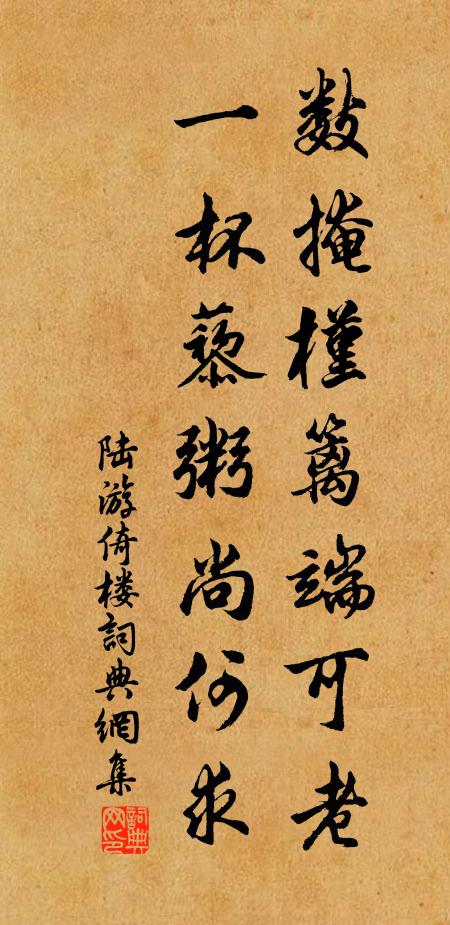 数掩槿篱端可老
一杯藜粥尚何求
陆游倚楼词典網集
詞典网印